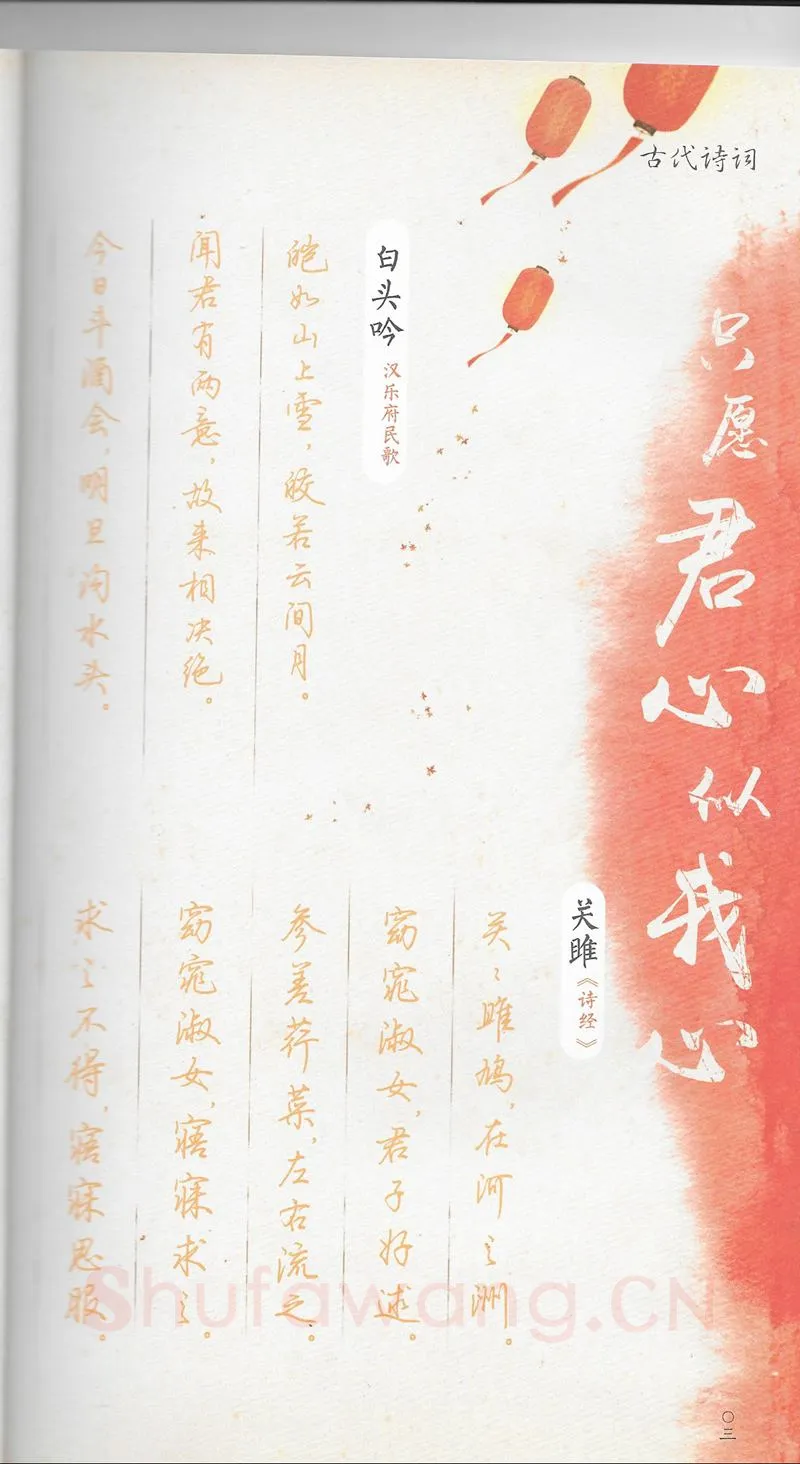 古代诗词
只愿君心似我心
白头吟 汉乐府民歌
皑如山上雪，皎若云间月。
闻君有两意，故来相决绝。
今日斗酒会，明旦沟水头。
关雎《诗经》
关〻雎鸠，在河之洲。
窈窕淑女，君子好逑。
参差荇菜，左右流之。
窈窕淑女，寤寐求之。
求之不得，寤寐思服。
Shufawang.CN
〇三